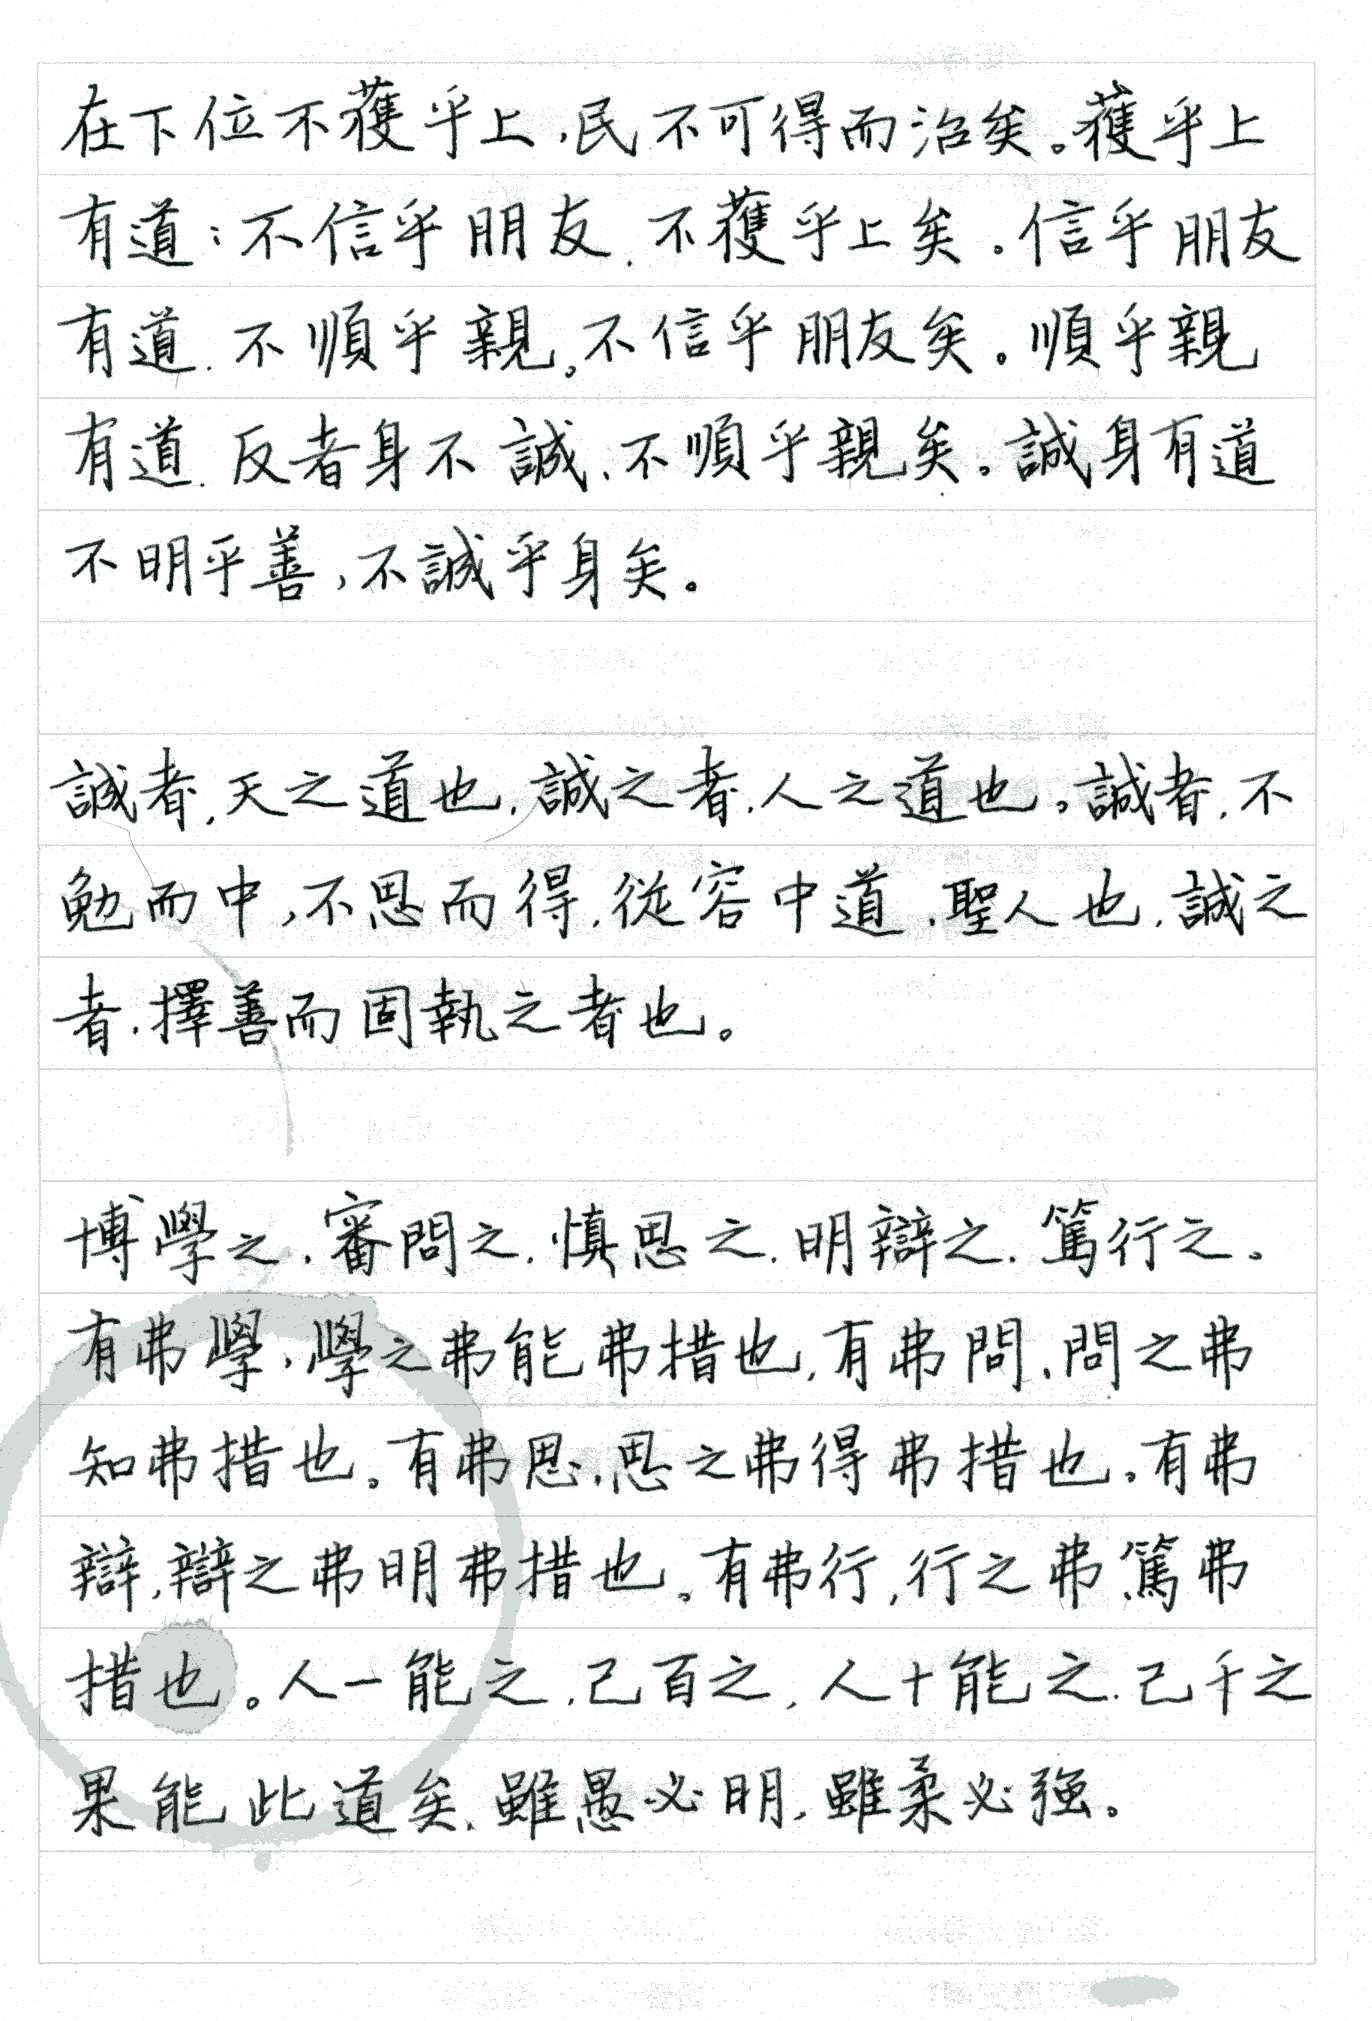 在下位不獲乎上,民不可得而治矣。獲乎上
有道:不信乎朋友,不獲乎上矣。信乎朋友
有道,不順乎親,不信乎朋友矣。順乎親
有道,反者身不誠,不順乎親矣。誠身有道
不明乎善,不誠乎身矣。
誠者,天之道也,誠之者,人之道也。誠者,不
勉而中,不思而得,從容中道,聖人也,誠之
者,擇善而固執之者也。
博學之,審問之,慎思之,明辯之,篤行之。
有弗學,學之弗能弗措也,有弗問,問之弗
知弗措也。有弗思,思之弗得弗措也。有弗
辯,辯之弗明弗措也。有弗行,行之弗篤弗
措也。人一能之,己百之,人十能之,己千之
果能此道矣,雖愚必明,雖柔必強。